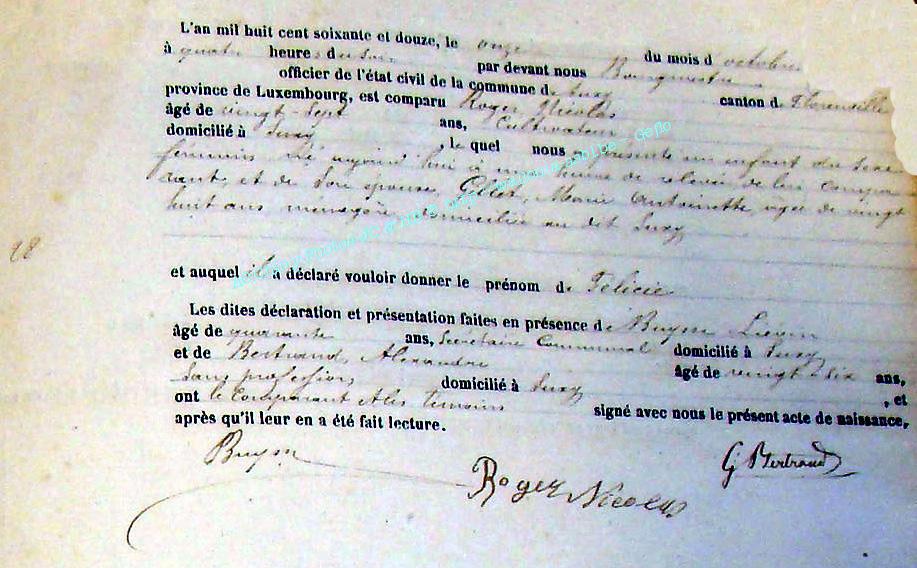 L'an mil huit cent soixante et douze, le onze du mois d'octobre
à quatre heures du soir par devant nous Bourgmestre
officier de l'état civil de la commune de Suxy canton de Florenville
province de Luxembourg, est comparu Roger Nicolas
âgé de vingt-sept ans, Cultivateur
domicilié à Suxy, le quel nous a présenté un enfant du sexe
féminin né aujourd'hui à une heure de relevée, de lui compa
rant, et de son épouse, Gillet, Marie Antoinette, agée de vingt
huit ans, ménagère, domiciliée au dit Suxy
28
et auquel il a déclaré vouloir donner le prénom de Félicie
Les dites déclaration et présentation faites en présence de Buysm
âgé de quarante ans, Secrétaire Communal domicilié à Suxy
et de Bertrand, Alexandre âgé de vingt-six ans,
sans profession domicilié à Suxy, et
ont le Comparant & les témoins signé avec nous le présent acte de naissance,
après qu'il leur en a été fait lecture.
Buysm
Roger Nicolas
G Bertrand